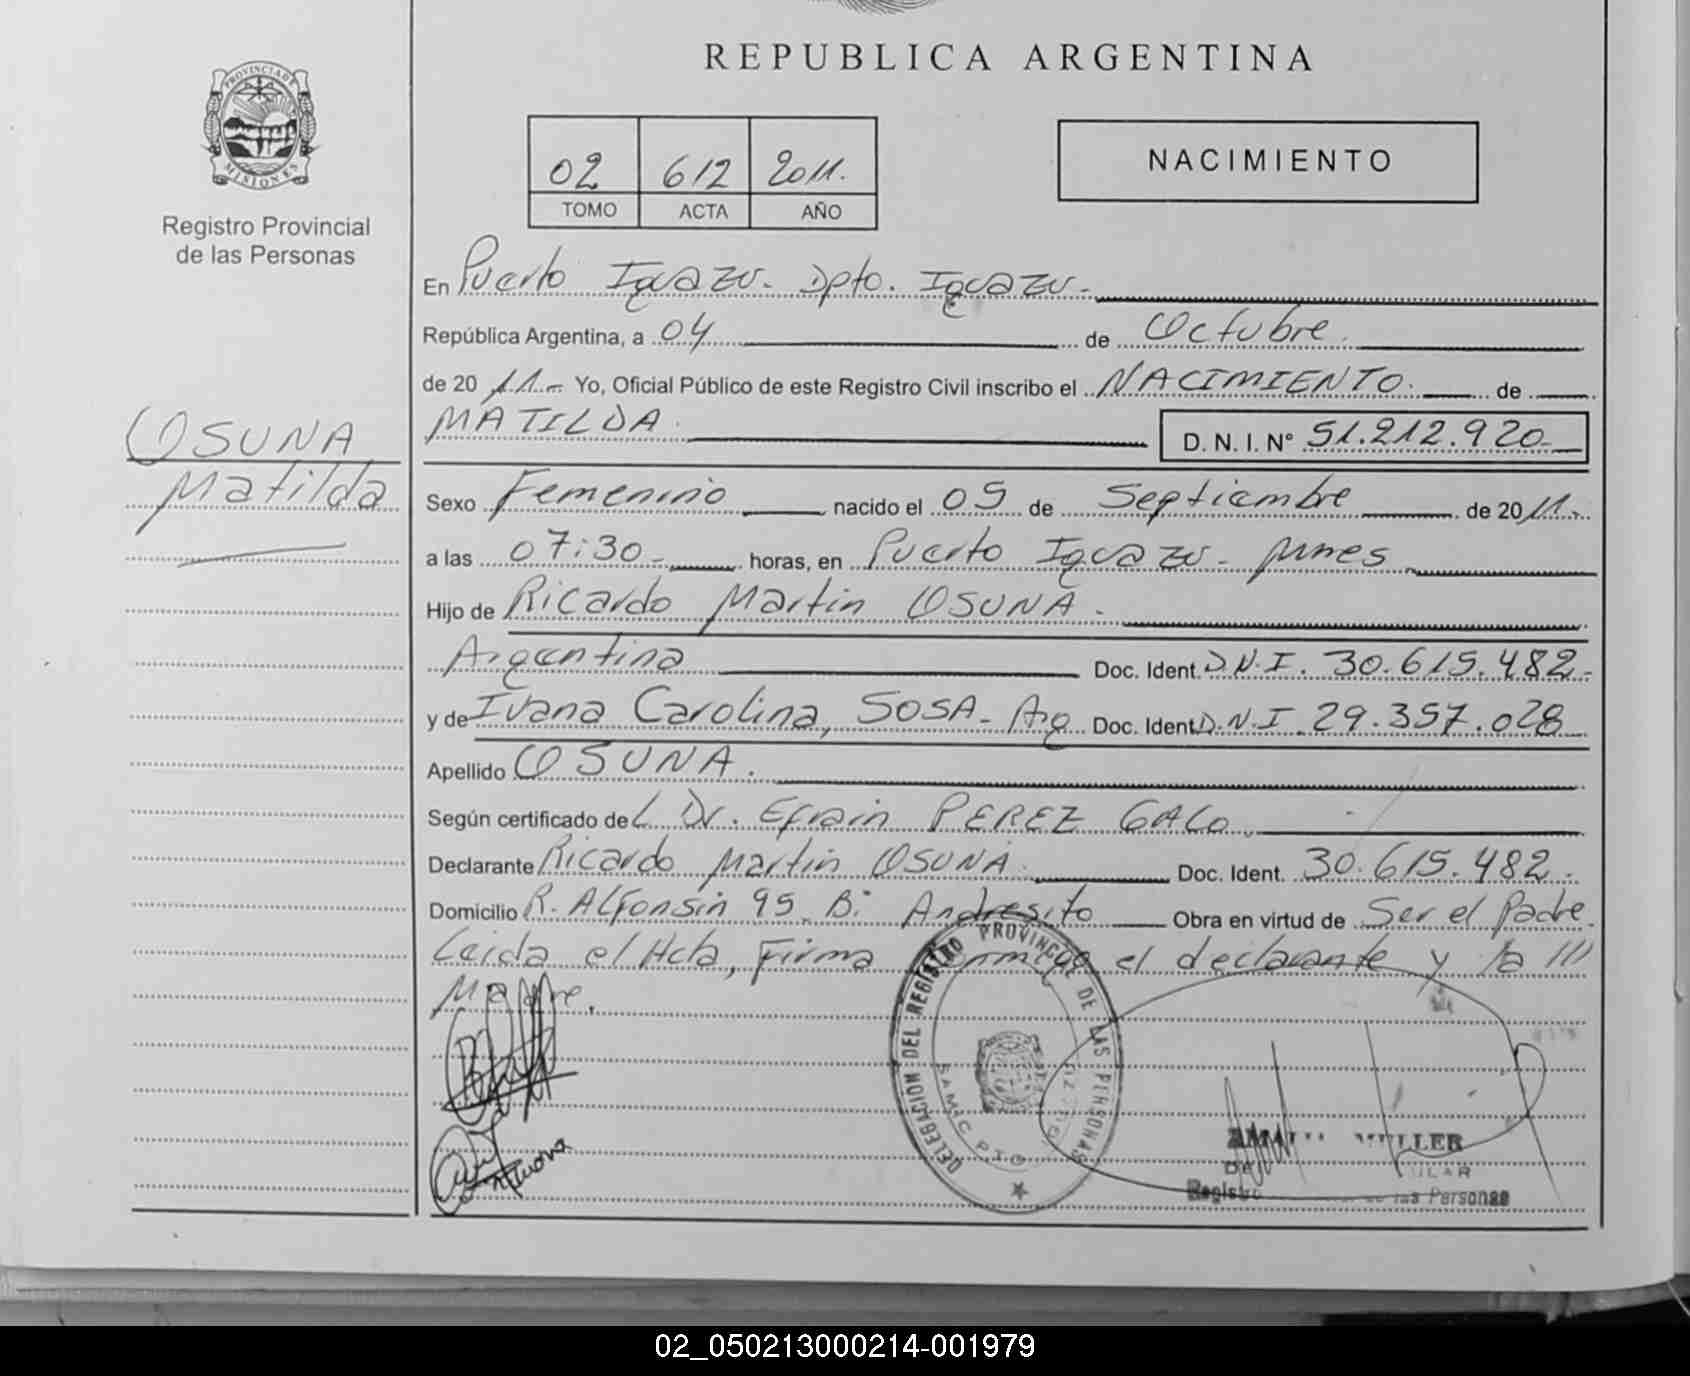 REPUBLICA ARGENTINA
PROVINCIA DE
MISIONES
Registro Provincial
de las Personas
02 612 2011.
TOMO ACTA AÑO
NACIMIENTO
En Puerto Iguazu- Dpto. Iguazu-
República Argentina, a 04 de Octubre.
de 20 11.- Yo, Oficial Público de este Registro Civil inscribo el NACIMIENTO. de
MATILDA. D. N. I. N° 51.212.920-
OSUNA
Matilda
Sexo Femenino nacido el 05 de Septiembre de 2011.-
a las 07:30- horas, en Puerto Iguazu- Mnes
Hijo de Ricardo Martin OSUNA.
Argentina Doc. Ident. D.N.I. 30.615.482-
y de Ivana Carolina, SOSA- Arg Doc. Ident. D.N.I 29.357.028
Apellido OSUNA.
Según certificado del Dr. Efrain PEREZ GALO.
Declarante Ricardo Martin OSUNA. Doc. Ident. 30.615.482-
Domicilio R. ALFonsin 95 B: Andresito Obra en virtud de Ser el Padre.
Leida el Acta, Firma el declarante y la
Madre.
DELEGACION DEL REGISTRO PROVINCIAL DE LAS PERSONAS
SAMIC PTO
MULLER
Registro de las Personas
02_050213000214-001979